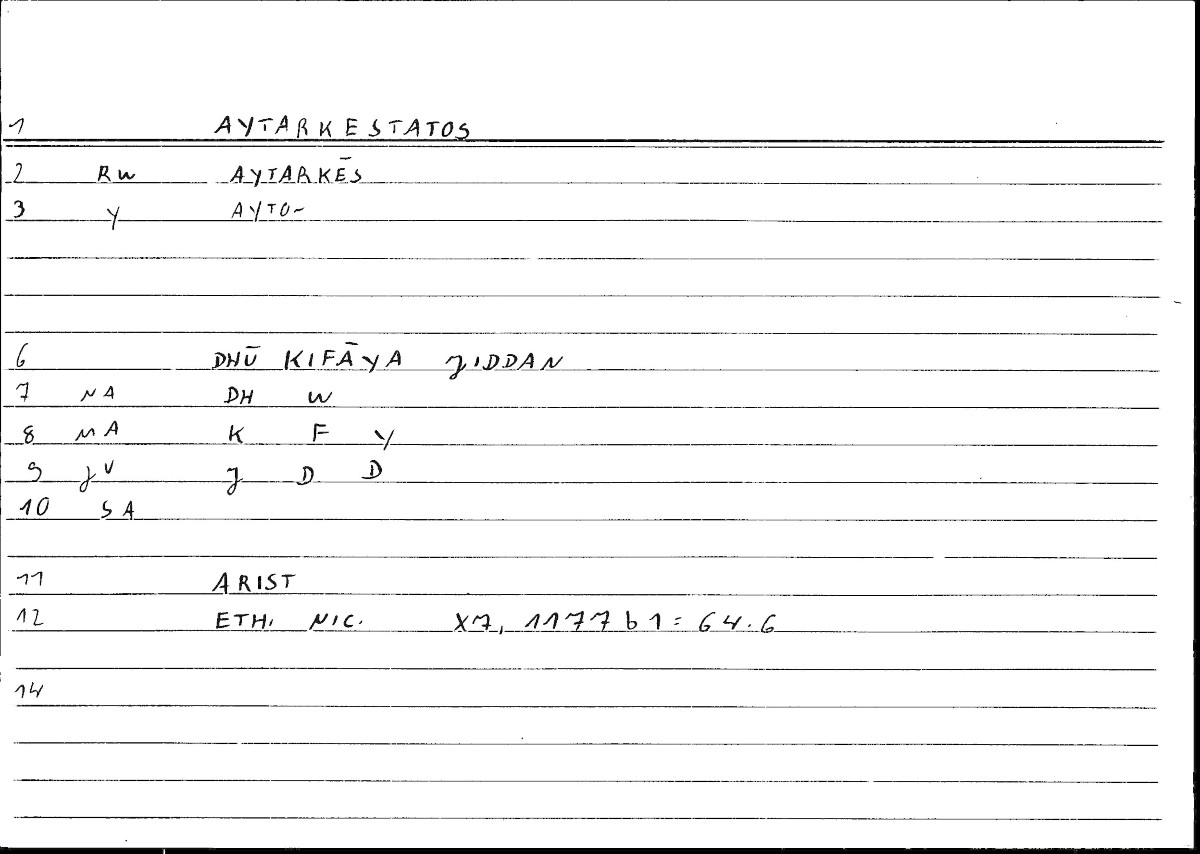 1 AYTARKESTATOS
2 RW AYTARKĒS
3 Y AYTO-
6 DHŪ KIFĀYA JIDDAN
7 NA DH W
8 MA K F Y
9 JU J D D
10 SA
11 ARIST
12 ETH. NIC. X7, 1177 b 1 = 64.6
14